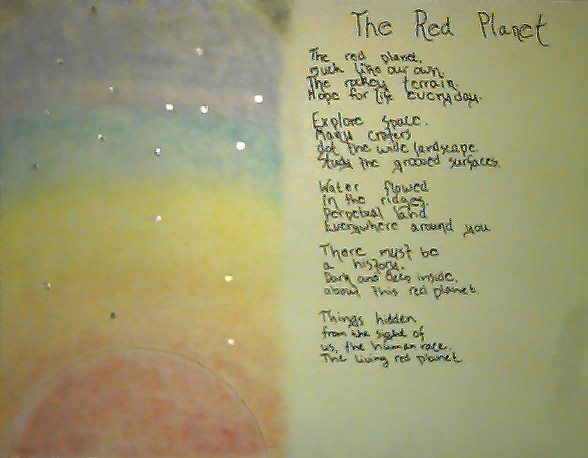 The Red Planet
The red planet.
much like our own.
The rockey terrain.
Hope for life everyday.
Explore space.
Many craters
dot the wide landscape
Study the grooved surfaces.
Water flowed
In the ridges.
Perpetual land
Everywhere around you
There must be
a history.
Dark and deep inside.
about this red planet.
Things hidden
from the sight of
us, the human race.
The living red planet